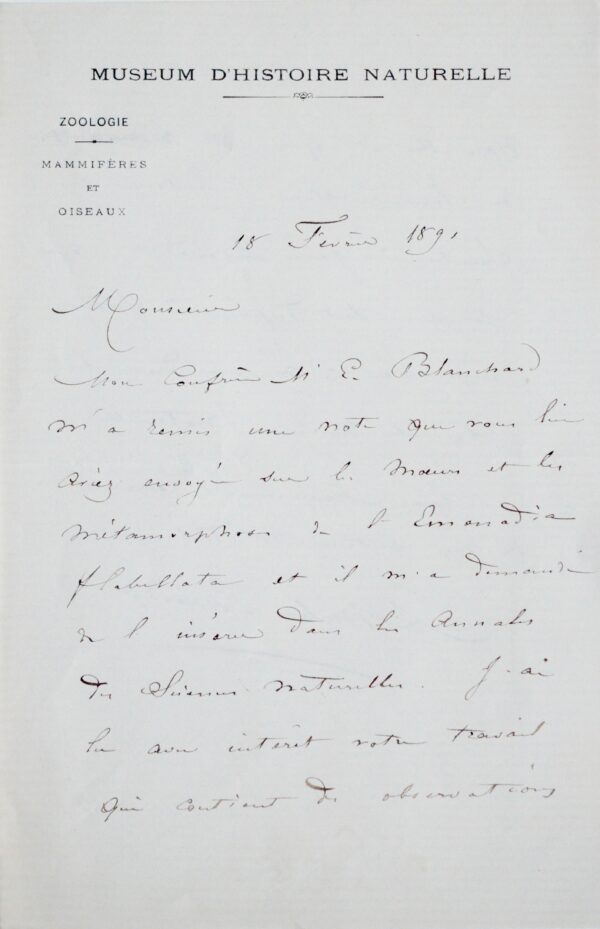 MUSEUM D'HISTOIRE NATURELLE
ZOOLOGIE
MAMMIFÈRES
ET
OISEAUX
18 Février 1891
Monsieur
Mon Confrère Mr E. Blanchard
m'a remis une note que vous lui
aviez envoyée sur les Mœurs et les
métamorphoses de l'Emenadia
flabellata et il m'a demandé
de l'insérer dans les Annales
des Sciences naturelles. J'ai
lu avec intérêt votre travail
qui contient des observations